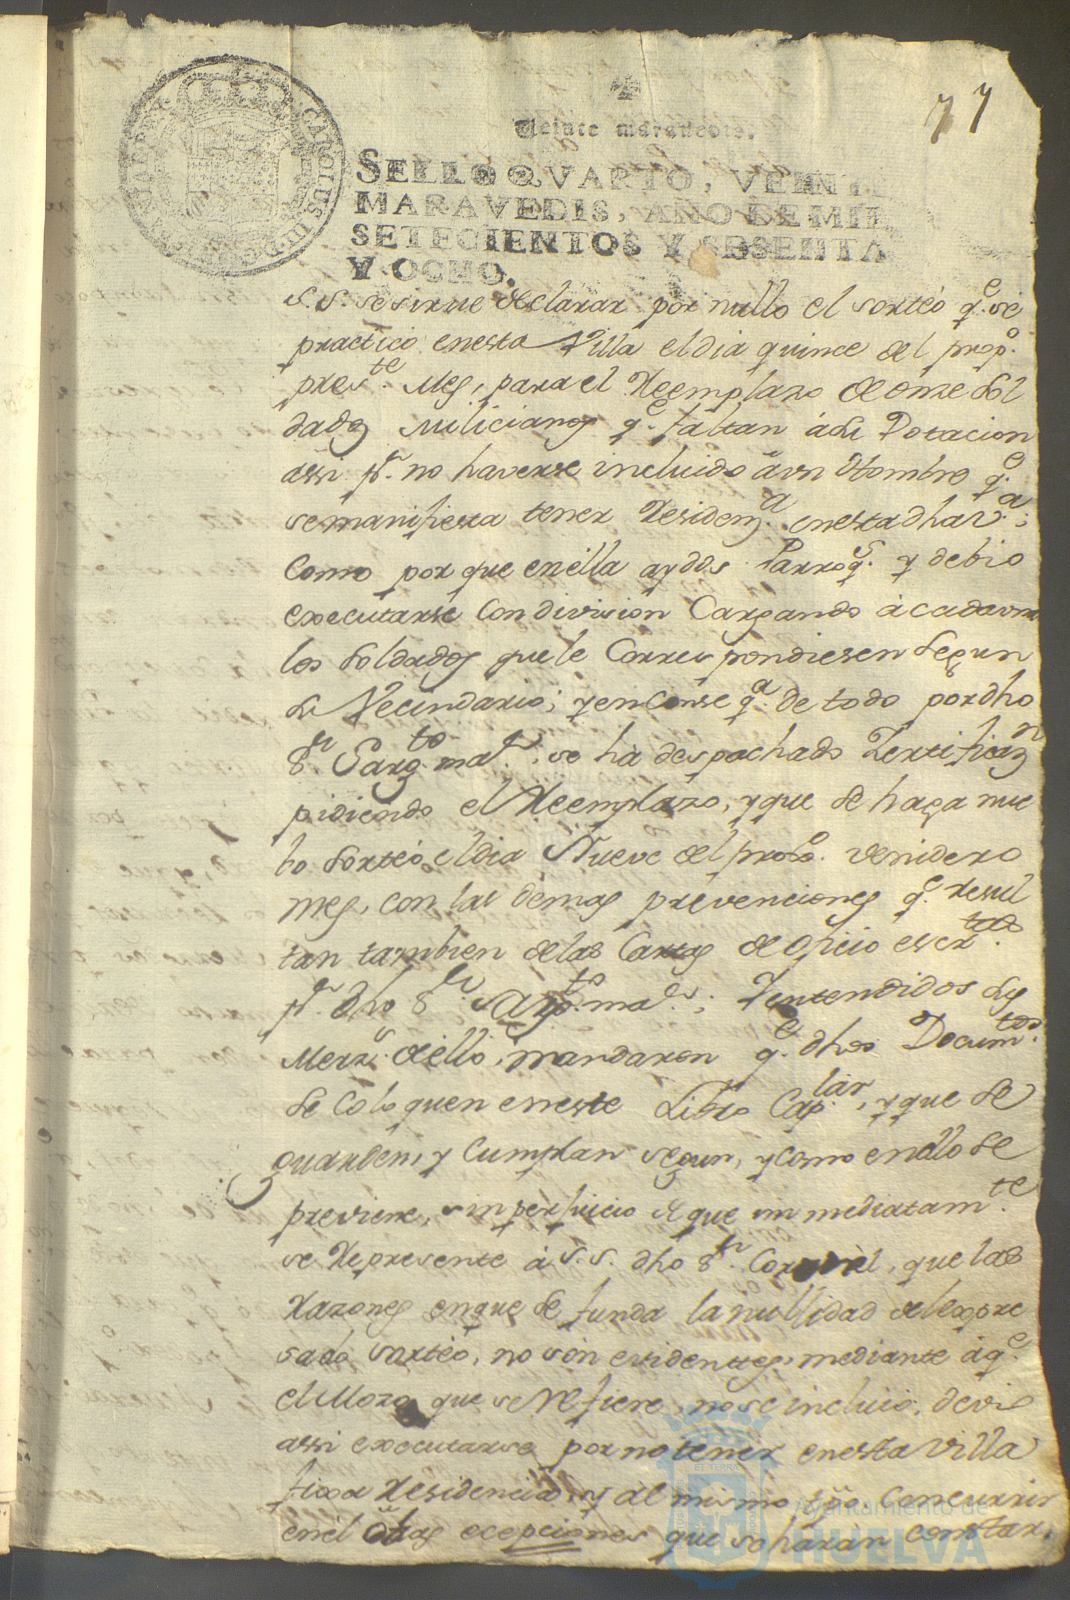 77
Veinte maravedis.
SELLO QVARTO, VEINTE
MARAVEDIS, AÑO DE MIL
SETECIENTOS Y SESENTA
Y OCHO.
CAROLUS III D G
S. S. se sirve declarar por nullo el sorteo q.e se
practicó enesta Villa el dia quince del prop.o
pres.te Mes, para el Reemplazo de onze Sol
dados Milicianos q.e faltan á su Dotacion
assi p.r no haverse incluido á un Hombre q.e
se manifiesta tener Residenz.a enesta dha V.a;
Como por que en ella ay dos Parroq.s y debio
executarse con division Cargando à cada una
los Soldados que le Correspondiesen Segun
su Vecindario; y en Conseq.a de todo por dho
S.r Sarg.to ma.r, se ha despachado Zertificaz.n
pidiendo el Reemplazo, y que se haga nue
bo Sorteo el dia Nueve del prox.o venidero
mes, con las demas prevenciones q.e Resul
tan tambien de las Cartas de oficio escr.tas
p.r dho S.r Sarg.to ma.r; Y entendidos sus
Merz.s de ello, mandaron q.e dhos Docum.tos
se coloquen en este Libro Cap.lar, y que se
guarden, y Cumplan segun, y como en ello se
previene, sin perjuicio de que inmediatam.te
se Represente à S. S. dho S.r Coronèl, que las
Razones en que se funda la nullidad del expre
sado sorteo, no son evidentes, mediante à q.e
el Mozo que se Refiere, no se incluió, devió
assi executarse por no tener en esta Villa
fixa Residencia, y al mismo tpo. Concurrir
en él otras ecepciones que se harán constar.
Ayuntamiento de
HUELVA